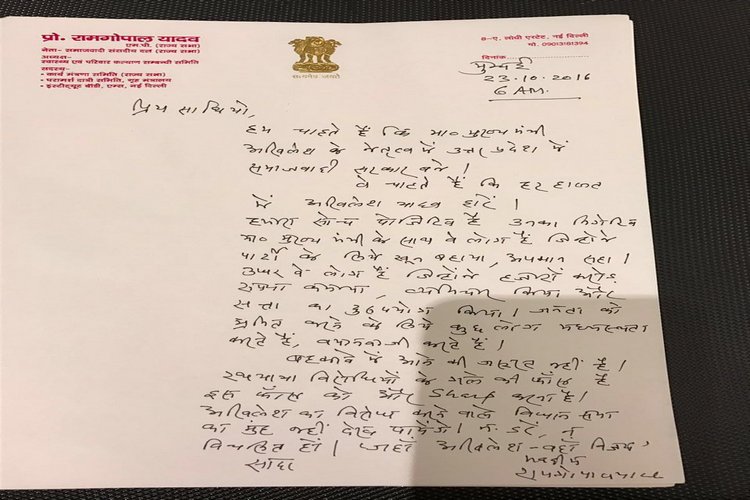 प्रो. रामगोपाल यादव
एम.पी. (राज्य सभा)
नेता- समाजवादी संसदीय दल (राज्य सभा)
अध्यक्ष-
स्वास्थ्य एवं परिवार कल्याण सम्बन्धी समिति
सदस्य-
- कार्य मंत्रणा समिति (राज्य सभा)
- परामर्श दात्री समिति, गृह मंत्रालय
- इंस्टीट्यूट बॉडी, एम्स, नई दिल्ली
सत्यमेव जयते
8-ए, लोधी एस्टेट, नई दिल्ली
मो. 09013181394
दिनांक
मुम्बई
23.10.2016
6 AM.
प्रिय साथियो,
हम चाहते हैं कि मा० मुख्य मंत्री
अखिलेश के नेतृत्व में उत्तर प्रदेश में
समाजवादी सरकार बने।
वे चाहते हैं कि हर हालत
में अखिलेश यादव हारें।
हमारी सोच पॉजिटिव है उनका निगेटिव
मा० मुख्य मंत्री के साथ वे लोग हैं जिन्होंने
पार्टी के लिये खून बहाया, अपमान सहा।
उधर वे लोग हैं जिन्होंने हजारों करोड़
रुपया कमाया, व्यभिचार किया और
सत्ता का दुरुपयोग किया। जनता को
भ्रमित करने के लिये कुछ लोग मध्यस्थता
करते हैं, बयानबाजी करते हैं।
बहकावे में आने की जरूरत नहीं है।
रथयात्रा विरोधियों के गले की फाँस है
इस फाँस को और Sharp करना है।
अखिलेश का विरोध करने वाले विधान सभा
का मुंह नहीं देख पायेंगे। न डरें, न
विचलित हों। जहाँ अखिलेश - वहाँ विजय
सादर
भवदीय
रामगोपाल यादव